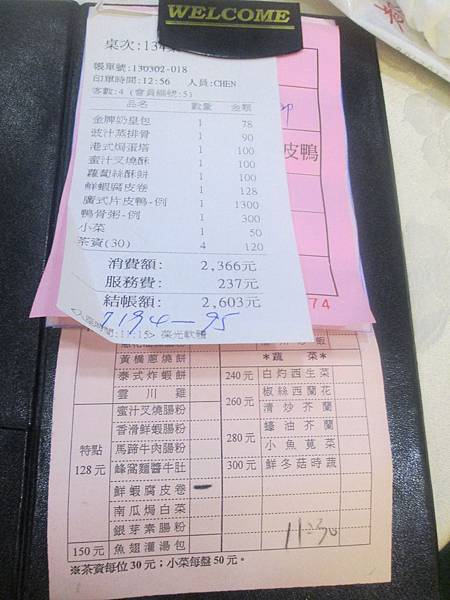 WELCOME
桌次:134
帳單號:130302-018
印單時間:12:56 人員:CHEN
客數:4 (會員編號:5)
品名 數量 金額
金牌奶皇包 1 78
豉汁蒸排骨 1 90
港式焗蛋塔 1 100
蜜汁叉燒酥 1 100
蘿蔔絲酥餅 1 100
鮮蝦腐皮卷 1 128
廣式片皮鴨-例 1 1300
鴨骨粥-例 1 300
小菜 1 50
茶資(30) 4 120
消費額: 2,366元
服務費: 237元
結帳額: 2,603元
時間:11:15> 葆光軟體
皮鴨
74
黃橋蔥燒餅 *蔬菜*
泰式炸蝦餅 240元 白灼西生菜
雲川雞 260元 椒絲西蘭花
蜜汁叉燒腸粉 清炒芥蘭
香滑鮮蝦腸粉 280元 蠔油芥蘭
特點 128元 馬蹄牛肉腸粉 小魚莧菜
蜂窩麵醬牛肚 300元 鮮冬菇時蔬
鮮蝦腐皮卷
南瓜焗白菜
銀芽素腸粉
150元 魚翅灌湯包
11:30
※茶資每位30元；小菜每盤50元。